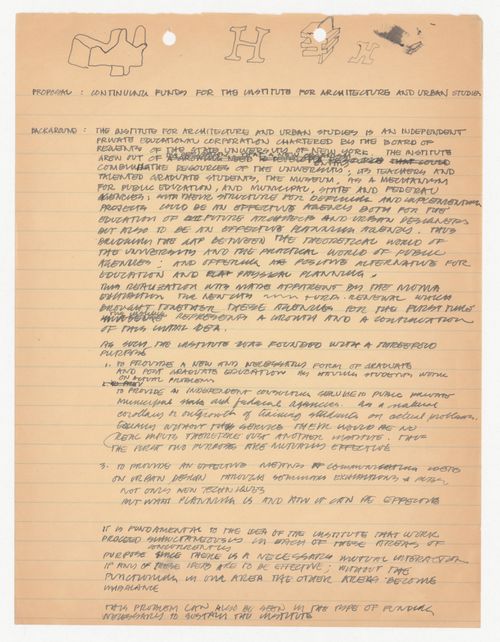 H
H
PROPOSAL : CONTINUING FUNDS FOR THE INSTITUTE FOR ARCHITECTURE AND URBAN STUDIES
BACKGROUND : THE INSTITUTE FOR ARCHITECTURE AND URBAN STUDIES IS AN INDEPENDENT
PRIVATE EDUCATIONAL CORPORATION CHARTERED BY THE BOARD OF
REGENTS OF THE STATE UNIVERSITY OF NEW YORK. THE INSTITUTE
GREW OUT OF
COMBINE THE RESOURCES OF THE UNIVERSITY, ITS TEACHERS AND
TALENTED GRADUATE STUDENTS, THE MUSEUM, AS A MECHANISM
FOR PUBLIC EDUCATION, AND MUNICIPAL, STATE AND FEDERAL
AGENCIES, WITH THEIR STRUCTURE FOR DEFINING AND IMPLEMENTING
PROJECTS COULD BE AN EFFECTIVE AGENCY BOTH FOR THE
EDUCATION OF FUTURE ARCHITECTS AND URBAN DESIGNERS
BUT ALSO TO BE AN EFFECTIVE PLANNING AGENCY. THUS
BRIDGING THE GAP BETWEEN THE THEORETICAL WORLD OF
THE UNIVERSITY AND THE PRACTICAL WORLD OF PUBLIC
AGENCIES, AND OFFERING POSITIVE ALTERNATIVE FOR
EDUCATION AND PHYSICAL PLANNING.
THIS REALIZATION WAS MADE APPARENT BY THE MOMA
EXHIBITION THE NEW CITY RENEWAL WHICH
BROUGHT TOGETHER THESE AGENCIES FOR THE FIRST TIME
THE INSTITUTE REPRESENTS A GROWTH AND A CONTINUATION
OF THIS INITIAL IDEA.
AS SUCH THE INSTITUTE WAS FOUNDED WITH A THREEFOLD
PURPOSE
1. TO PROVIDE A NEW AND NECESSARY FORM OF GRADUATE
AND POST GRADUATE EDUCATION BY HAVING STUDENTS WORK
ON ACTUAL PROBLEMS
TO PROVIDE AN INDEPENDENT CONSULTING SERVICE TO PUBLIC
municipal and federal agencies. as a natural
corollary or outgrowth of training students on actual problems.
EQUALLY WITHOUT THIS SERVICE THERE WOULD BE NO
REAL INPUTS THEREFORE JUST ANOTHER INSTITUTE. THUS
THE FIRST TWO PURPOSES ARE MUTUALLY EFFECTIVE
3. TO PROVIDE AN EFFECTIVE METHOD OF COMMUNICATING IDEAS
ON URBAN DESIGN THROUGH SEMINARS EXHIBITIONS &
NOT ONLY NEW TECHNIQUES
BUT WHAT PLANNING IS AND HOW IT CAN BE EFFECTIVE
IT IS FUNDAMENTAL TO THE IDEA OF THE INSTITUTE THAT WORK
PROCEED SIMULTANEOUSLY IN EACH OF THESE AREAS OF
CONCURRENTLY
PURPOSE SINCE THERE IS A NECESSARY MUTUAL INTERACTION
IF ANY OF THESE IDEAS ARE TO BE EFFECTIVE; WITHOUT THE
FUNCTIONING IN ONE AREA THE OTHER AREAS BECOME
IMBALANCE
THIS PROBLEM CAN ALSO BE SEEN IN THE TYPE OF FUNDING
NECESSARY TO SUSTAIN THE INSTITUTE